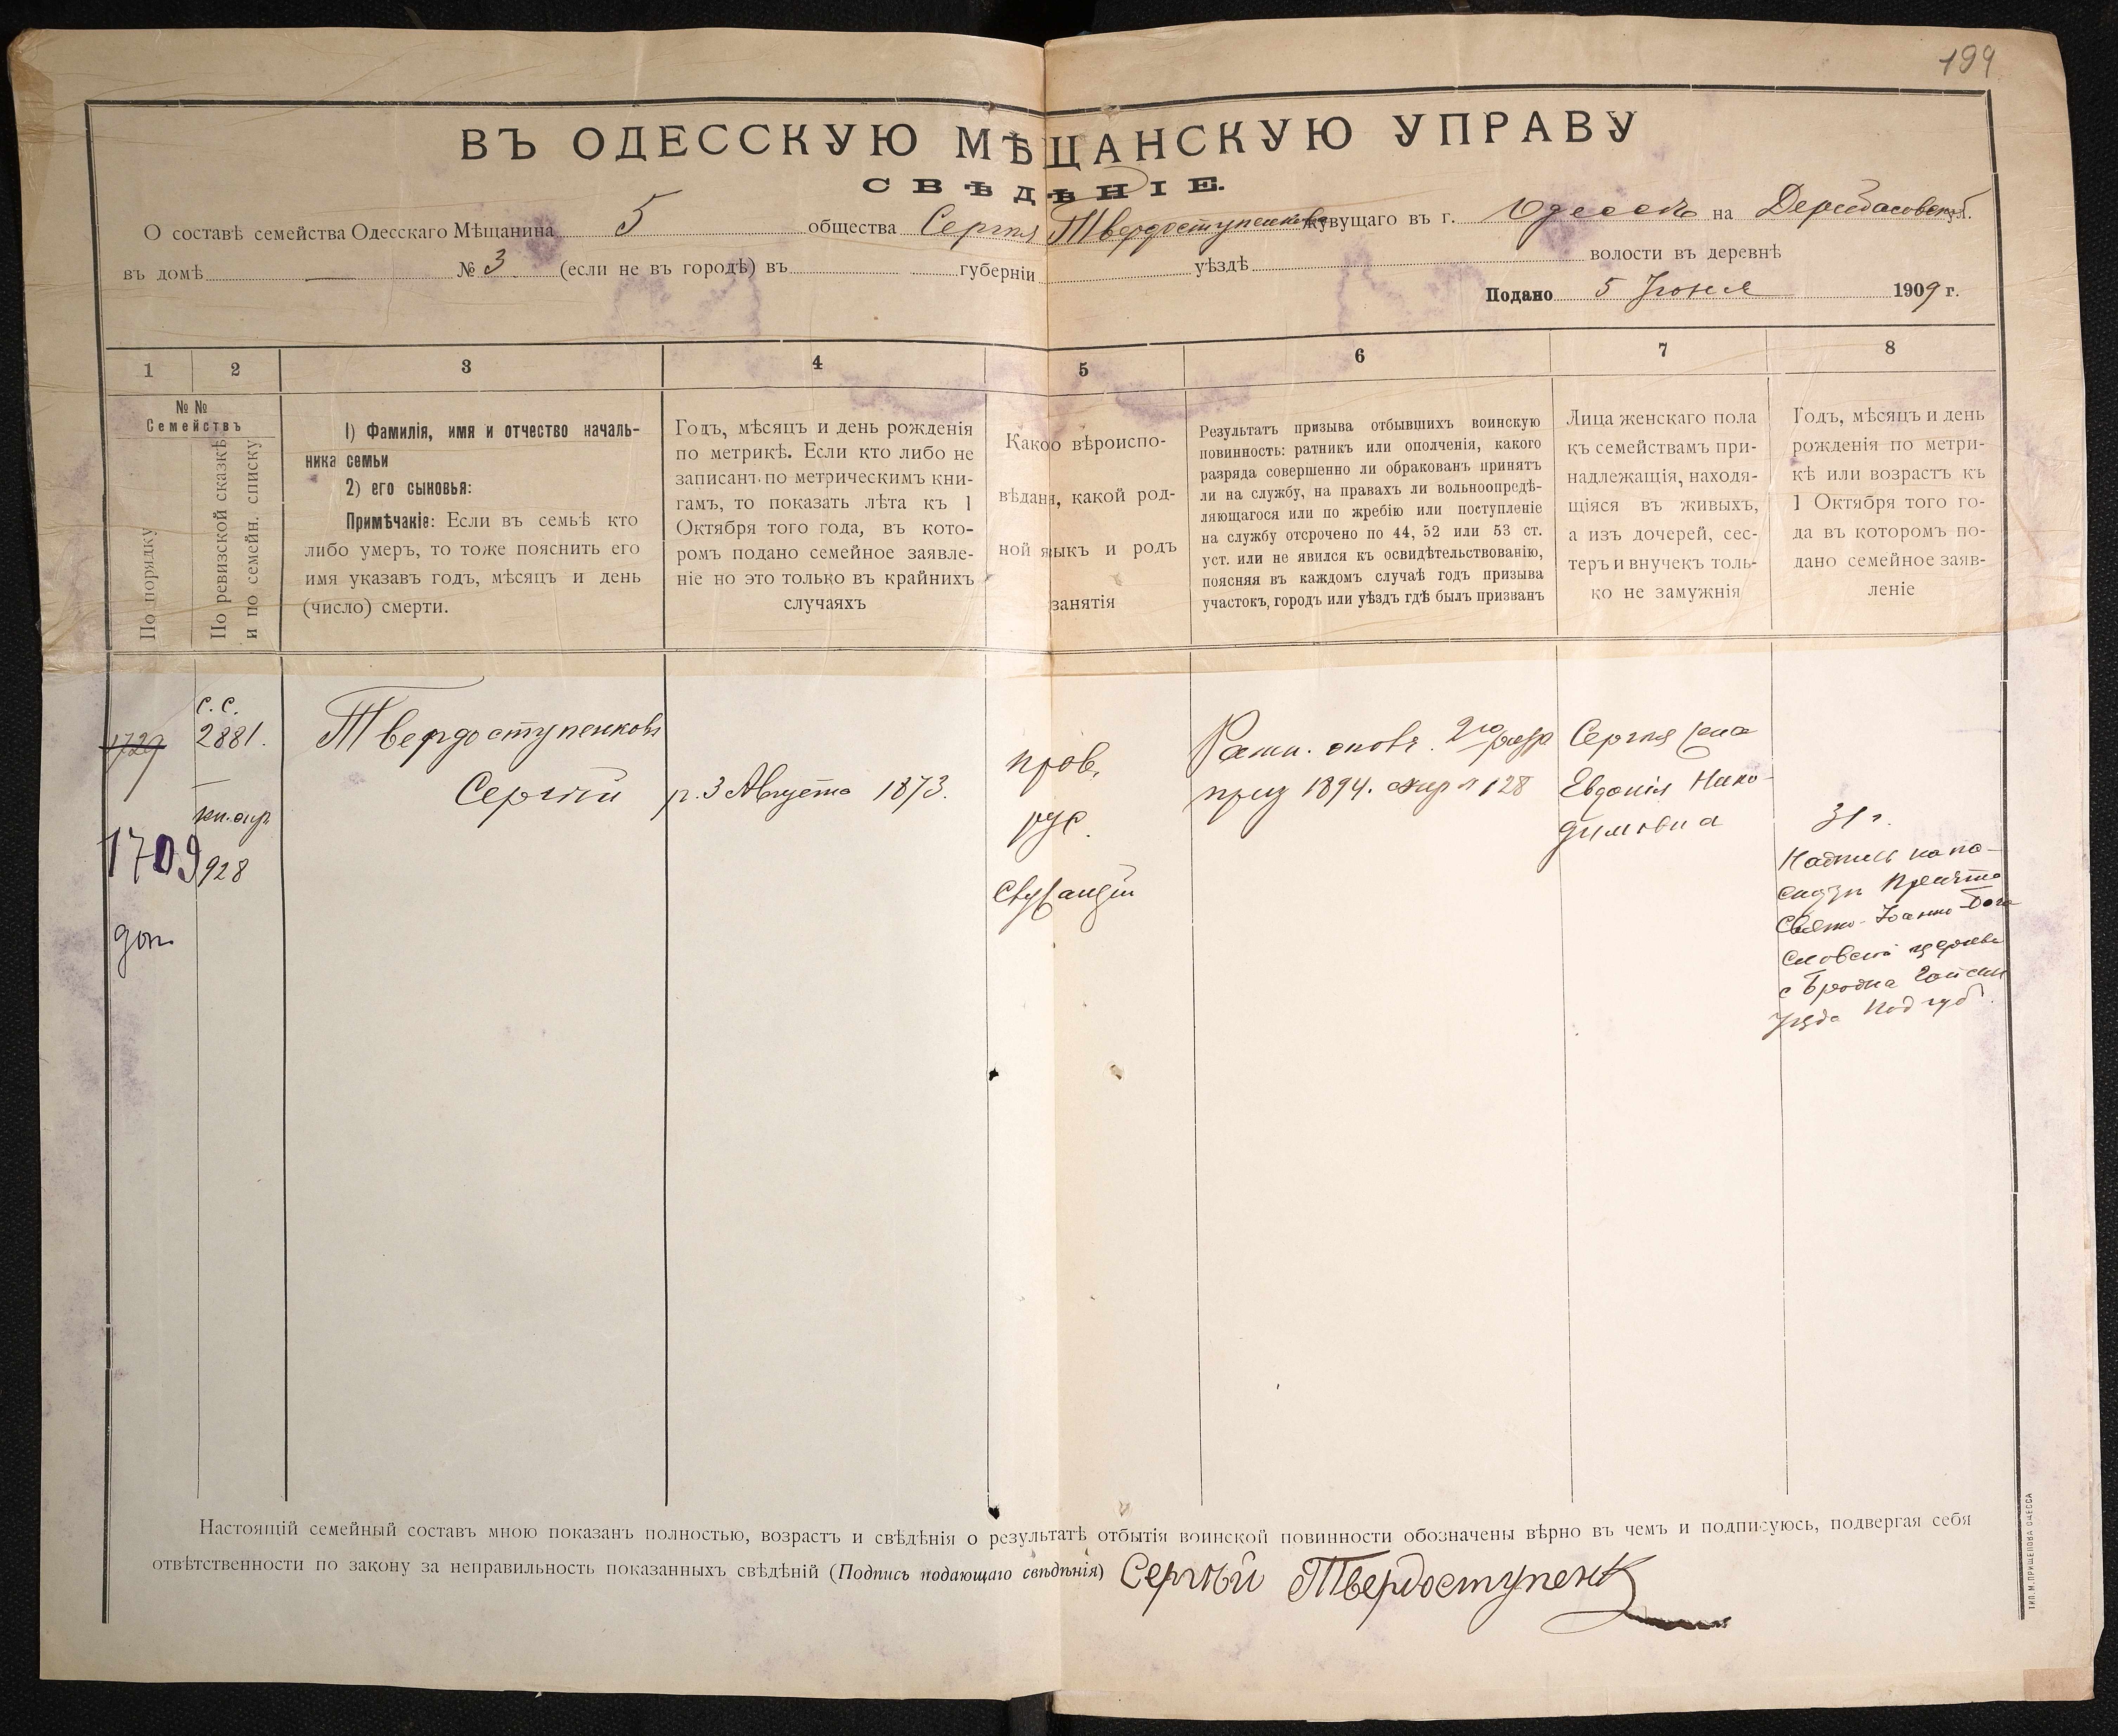 199
ВЪ ОДЕССКУЮ МѢЩАНСКУЮ УПРАВУ
СВѢДѢНІЕ.
О составѣ семейства Одесскаго Мѣщанина 5 общества Сергѣя Твердоступенкова живущаго въ г. Одессѣ на Дерибасовской ул.
въ домѣ — № 3 (если не въ городѣ) въ губерніи уѣздѣ волости въ деревнѣ
Подано 5 Іюня 1909 г.
1 2 3 4 5 6 7 8
№№
Семействъ
По порядку
По ревизской сказкѣ
и по семейн. списку
1) Фамилія, имя и отчество началь-
ника семьи
2) его сыновья:
Примѣчаніе: Если въ семьѣ кто
либо умеръ, то тоже пояснить его
имя указавъ годъ, мѣсяцъ и день
(число) смерти.
Годъ, мѣсяцъ и день рожденія
по метрикѣ. Если кто либо не
записанъ по метрическимъ кни-
гамъ, то показать лѣта къ 1
Октября того года, въ кото-
ромъ подано семейное заявле-
ніе но это только въ крайнихъ
случаяхъ
Какое вѣроиспо-
вѣданя, какой род-
ной языкъ и родъ
занятія
Результатъ призыва отбывшихъ воинскую
повинность: ратникъ или ополченія, какого
разряда совершенно ли обракованъ принятъ
ли на службу, на правахъ ли вольноопредѣ-
ляющагося или по жребію или поступленіе
на службу отсрочено по 44, 52 или 53 ст.
уст. или не явился къ освидѣтельствованію,
поясняя въ каждомъ случаѣ годъ призыва
участокъ, городъ или уѣздъ гдѣ былъ призванъ
Лица женскаго пола
къ семействамъ при-
надлежащія, находя-
щіяся въ живыхъ,
а изъ дочерей, сес-
теръ и внучекъ толь-
ко не замужнія
Годъ, мѣсяцъ и день
рожденія по метри-
кѣ или возрастъ къ
1 Октября того го-
да въ которомъ по-
дано семейное заяв-
леніе
1729
1709
доп.
с. с.
2881.
928
Твердоступенковъ
Сергѣй
р. 3 Августа 1873.
прав.
рус.
служащій
Ратн. опол. 2го разр
приз 1894.
128
Сергѣя жена
Евдокія Нико-
димовна
31 г.
Надпись на по-
Свято-Іоанно-Бого
словской церкви
с
Уѣзда Под губ.
Настоящій семейный составъ мною показанъ полностью, возрастъ и свѣдѣнія о результатѣ отбытія воинской повинности обозначены вѣрно въ чемъ и подписуюсь, подвергая себя
отвѣтственности по закону за неправильность показанныхъ свѣдѣній (Подпись подающаго свѣдѣнія) Сергѣй Твердоступенк
ТИП. М. ПРИЩЕПОВА ОДЕССА